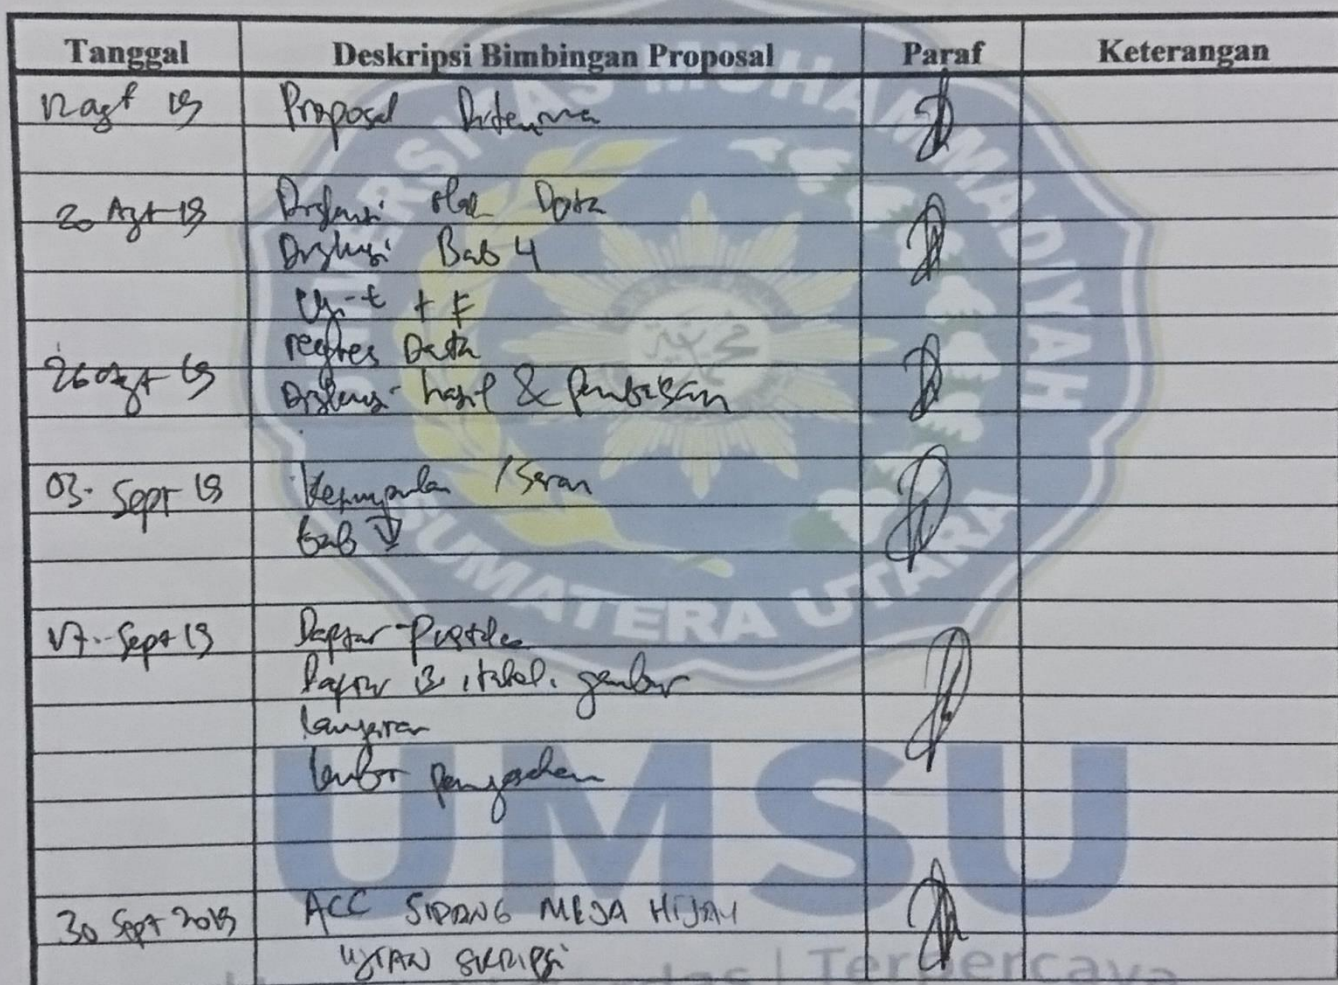 Tanggal Deskripsi Bimbingan Proposal Paraf Keterangan
12 agt 19 Proposal Diterima
20 Agt 19 Diskusi olah Data
Diskusi Bab 4
Uji-t + F
regres Data
26 Agt 19 Diskusi hasil & pembahasan
03. Sept 19 Kesimpulan / Saran
bab V
17. Sept 19 Daftar Pustaka
Daftar isi, tabel, gambar
lampiran
lembar pengesahan
30 Sept 2019 ACC SIDANG MEJA HIJAU
UJIAN SKRIPSI
UNIVERSITAS MUHAMMADIYAH
SUMATERA UTARA
UMSU
| Terpercaya